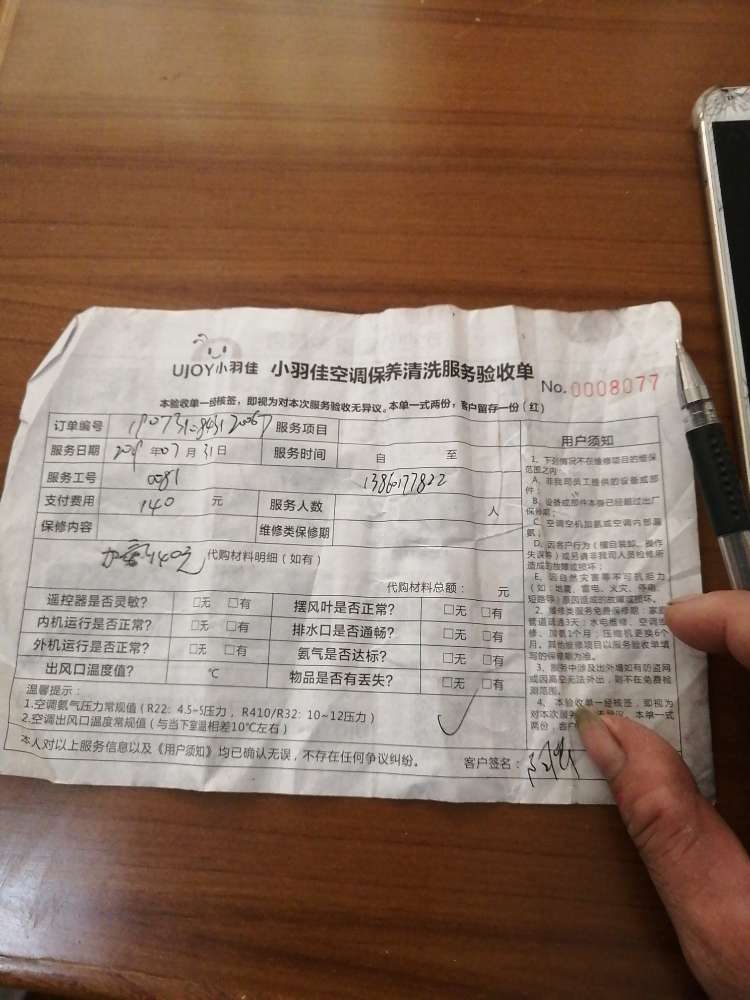 UJOY小羽佳 小羽佳空调保养清洗服务验收单 No. 0008077
本验收单一经核签，即视为对本次服务验收无异议。本单一式两份，客户留存一份（红）
订单编号 服务项目
服务日期 2019 年 07 月 31 日 服务时间 自 至
服务工号 0081 13860177822
支付费用 140 元 服务人数 人
保修内容 维修类保修期
140元 代购材料明细（如有）
代购材料总额： 元
遥控器是否灵敏？ □无 □有 摆风叶是否正常？ □无 □有
内机运行是否正常？ □无 □有 排水口是否通畅？ □无 □有
外机运行是否正常？ □无 □有 氨气是否达标？ □无 □有
出风口温度值？ ℃ 物品是否有丢失？ □无 □有
温馨提示：
1.空调氨气压力常规值（R22: 4.5-5压力，R410/R32: 10-12压力）
2.空调出风口温度常规值（与当下室温相差10℃左右）
本人对以上服务信息以及《用户须知》均已确认无误，不存在任何争议纠纷。 客户签名：
用户须知
1、下列情况不在维修项目的维保
范围之内
A、非我司员工提供的设备或部
件；
B、设备或部件本身已经超过出厂
保修期；
C、空调空机加氨或空调内部漏
氨；
D、因客户行为（擅自装卸、操作
失误等）或另请非我司人员检修所
造成的故障或损坏；
E、因自然灾害等不可抗拒力
（如：地震、雷电、火灾、停雨、
短路等）原因造成的故障或损坏。
2、维修类服务免费保修期：家庭
管道疏通3天；水电维修、空调维
修、加氨1个月；压缩机更换6个
月。其他维修项目以服务验收单填
写的保修期为准。
3、服务中涉及出外墙如有防盗网
或因高空无法外出，则不在免费检
测范围。
4、本验收单一经核签，即视为
对本次服务 无异议。本单一式
两份，客户